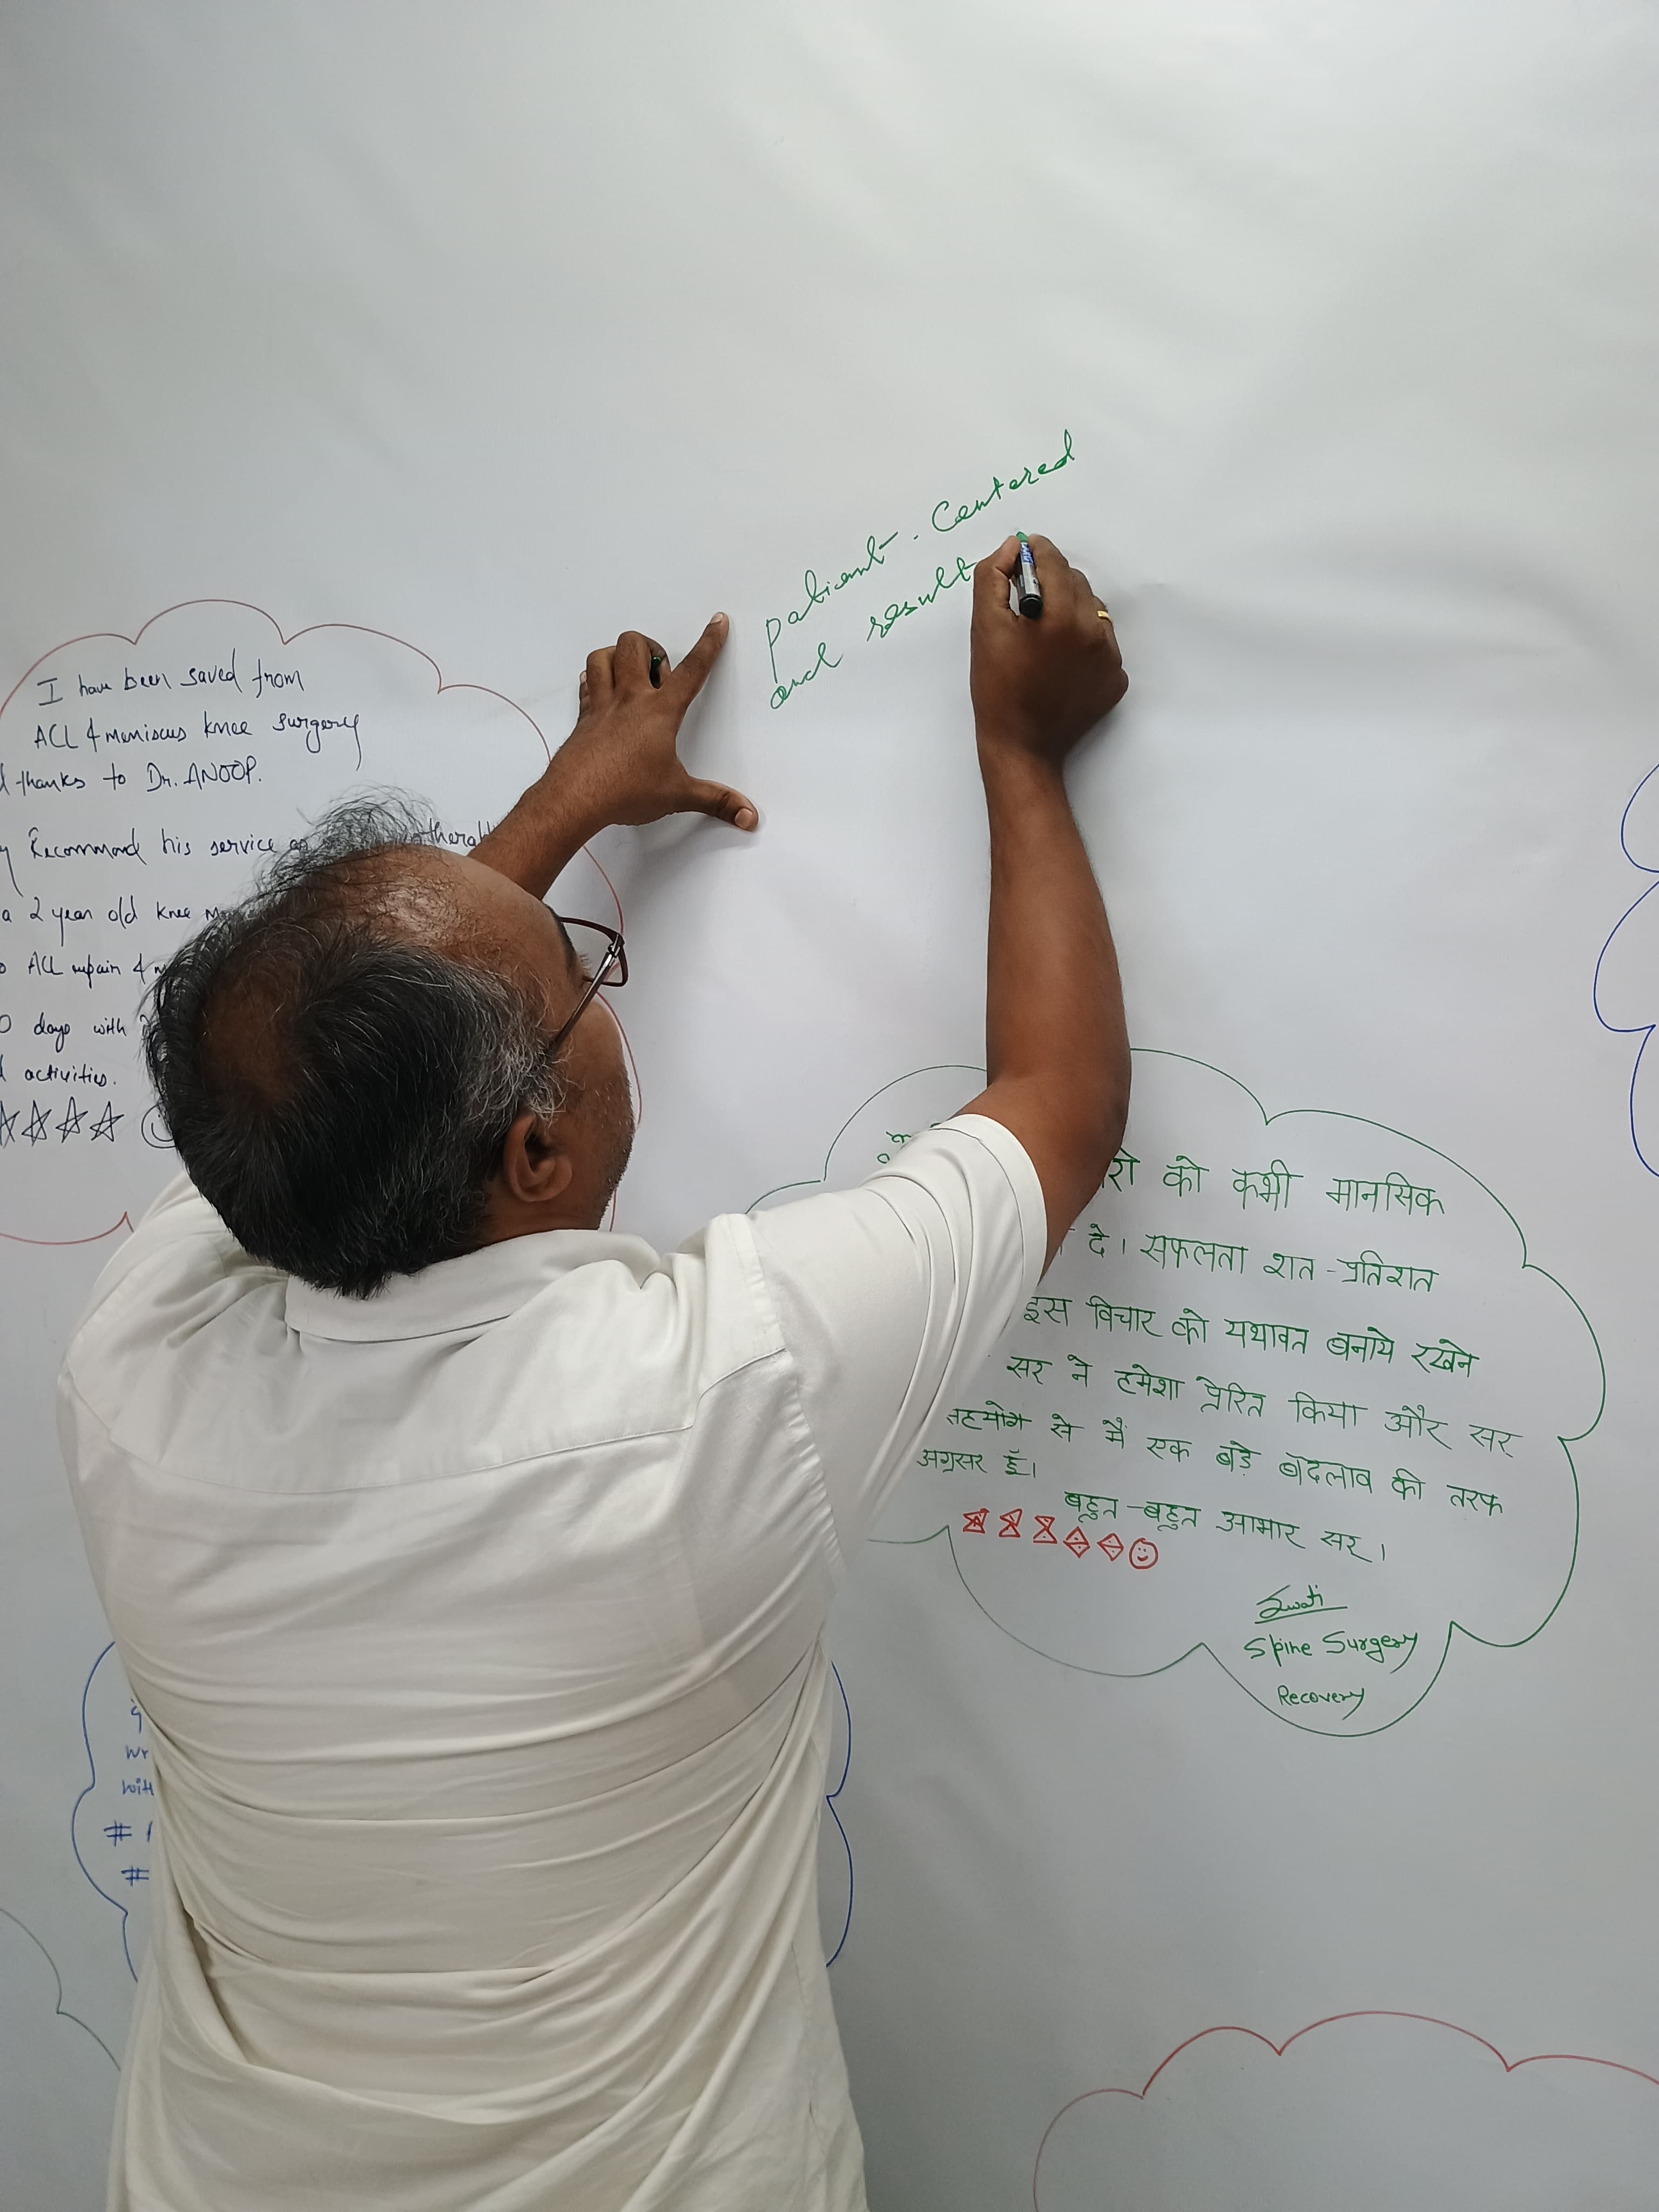 patient - Centered
and result
I have been saved from
ACL & meniscus knee surgery
thanks to Dr. ANOOP.
Recommond his service
a 2 year old knee
ACL repair &
days with
activities.
को कभी मानसिक
दे। सफलता शत-प्रतिशत
इस विचार को यथावत बनाये रखने
सर ने हमेशा प्रेरित किया और सर
सहयोग से मैं एक बड़े बदलाव की तरफ
अग्रसर हूँ।
बहुत-बहुत आभार सर।
Swati
Spine Surgery
Recovery
with
#
#